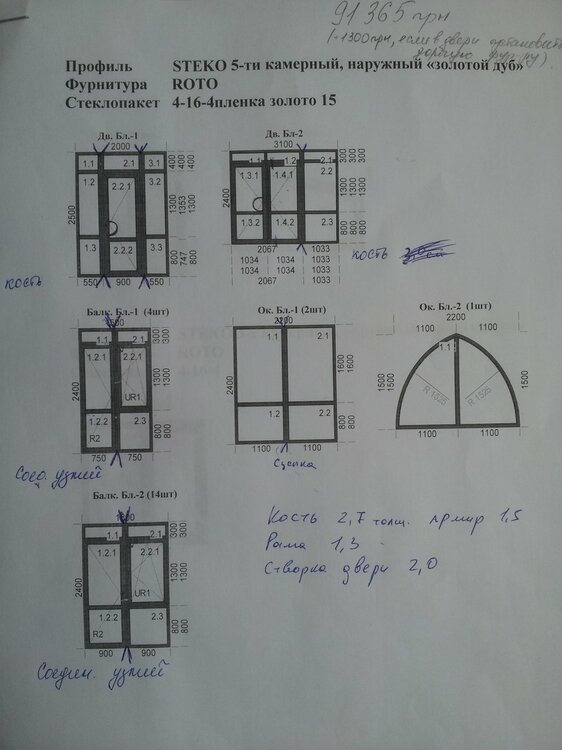 91 365 грн
(+1300грн, если в двери установить
дорогую фур-ру)
Профиль STEKO 5-ти камерный, наружный «золотой дуб»
Фурнитура ROTO
Стеклопакет 4-16-4пленка золото 15
Дв. Бл.-1
2000
1.1 2.1 3.1 400 400
1.2 2.2.1 3.2
2500 1300 1353 1300
1.3 2.2.2 3.3 800 747 800
550 900 550
кость
Дв. Бл-2
3100
1.1 1.2 2.1 300 300
1.3.1 1.4.1 2.2
2400 1300 1300
1.3.2 1.4.2 2.3 800 800
2067 1033
1034 1034 1033
2067 1033
кость
Балк. Бл.-1 (4шт)
1500
1.1 2.1 300
1.2.1 2.2.1
2400 1300 1300
UR1
1.2.2 2.3 800 800
R2
750 750
Соед. узкий
Ок. Бл.-1 (2шт)
2200
1.1 2.1
2400 1600 1600
1.2 2.2 800 800
1100 1100
Сцепка
Ок. Бл.-2 (1шт)
2200
1100 1100
1.1
1500 1500 R 1525 R 1525 1500
1100 1100
Балк. Бл.-2 (14шт)
1800
1.1 2.1 300
1.2.1 2.2.1
2400 1300 1300
UR1
1.2.2 2.3 800 800
R2
900 900
Соедин. узкий
Кость 2,7 толщ. армир 1,5
Рама 1,3
Створка двери 2,0